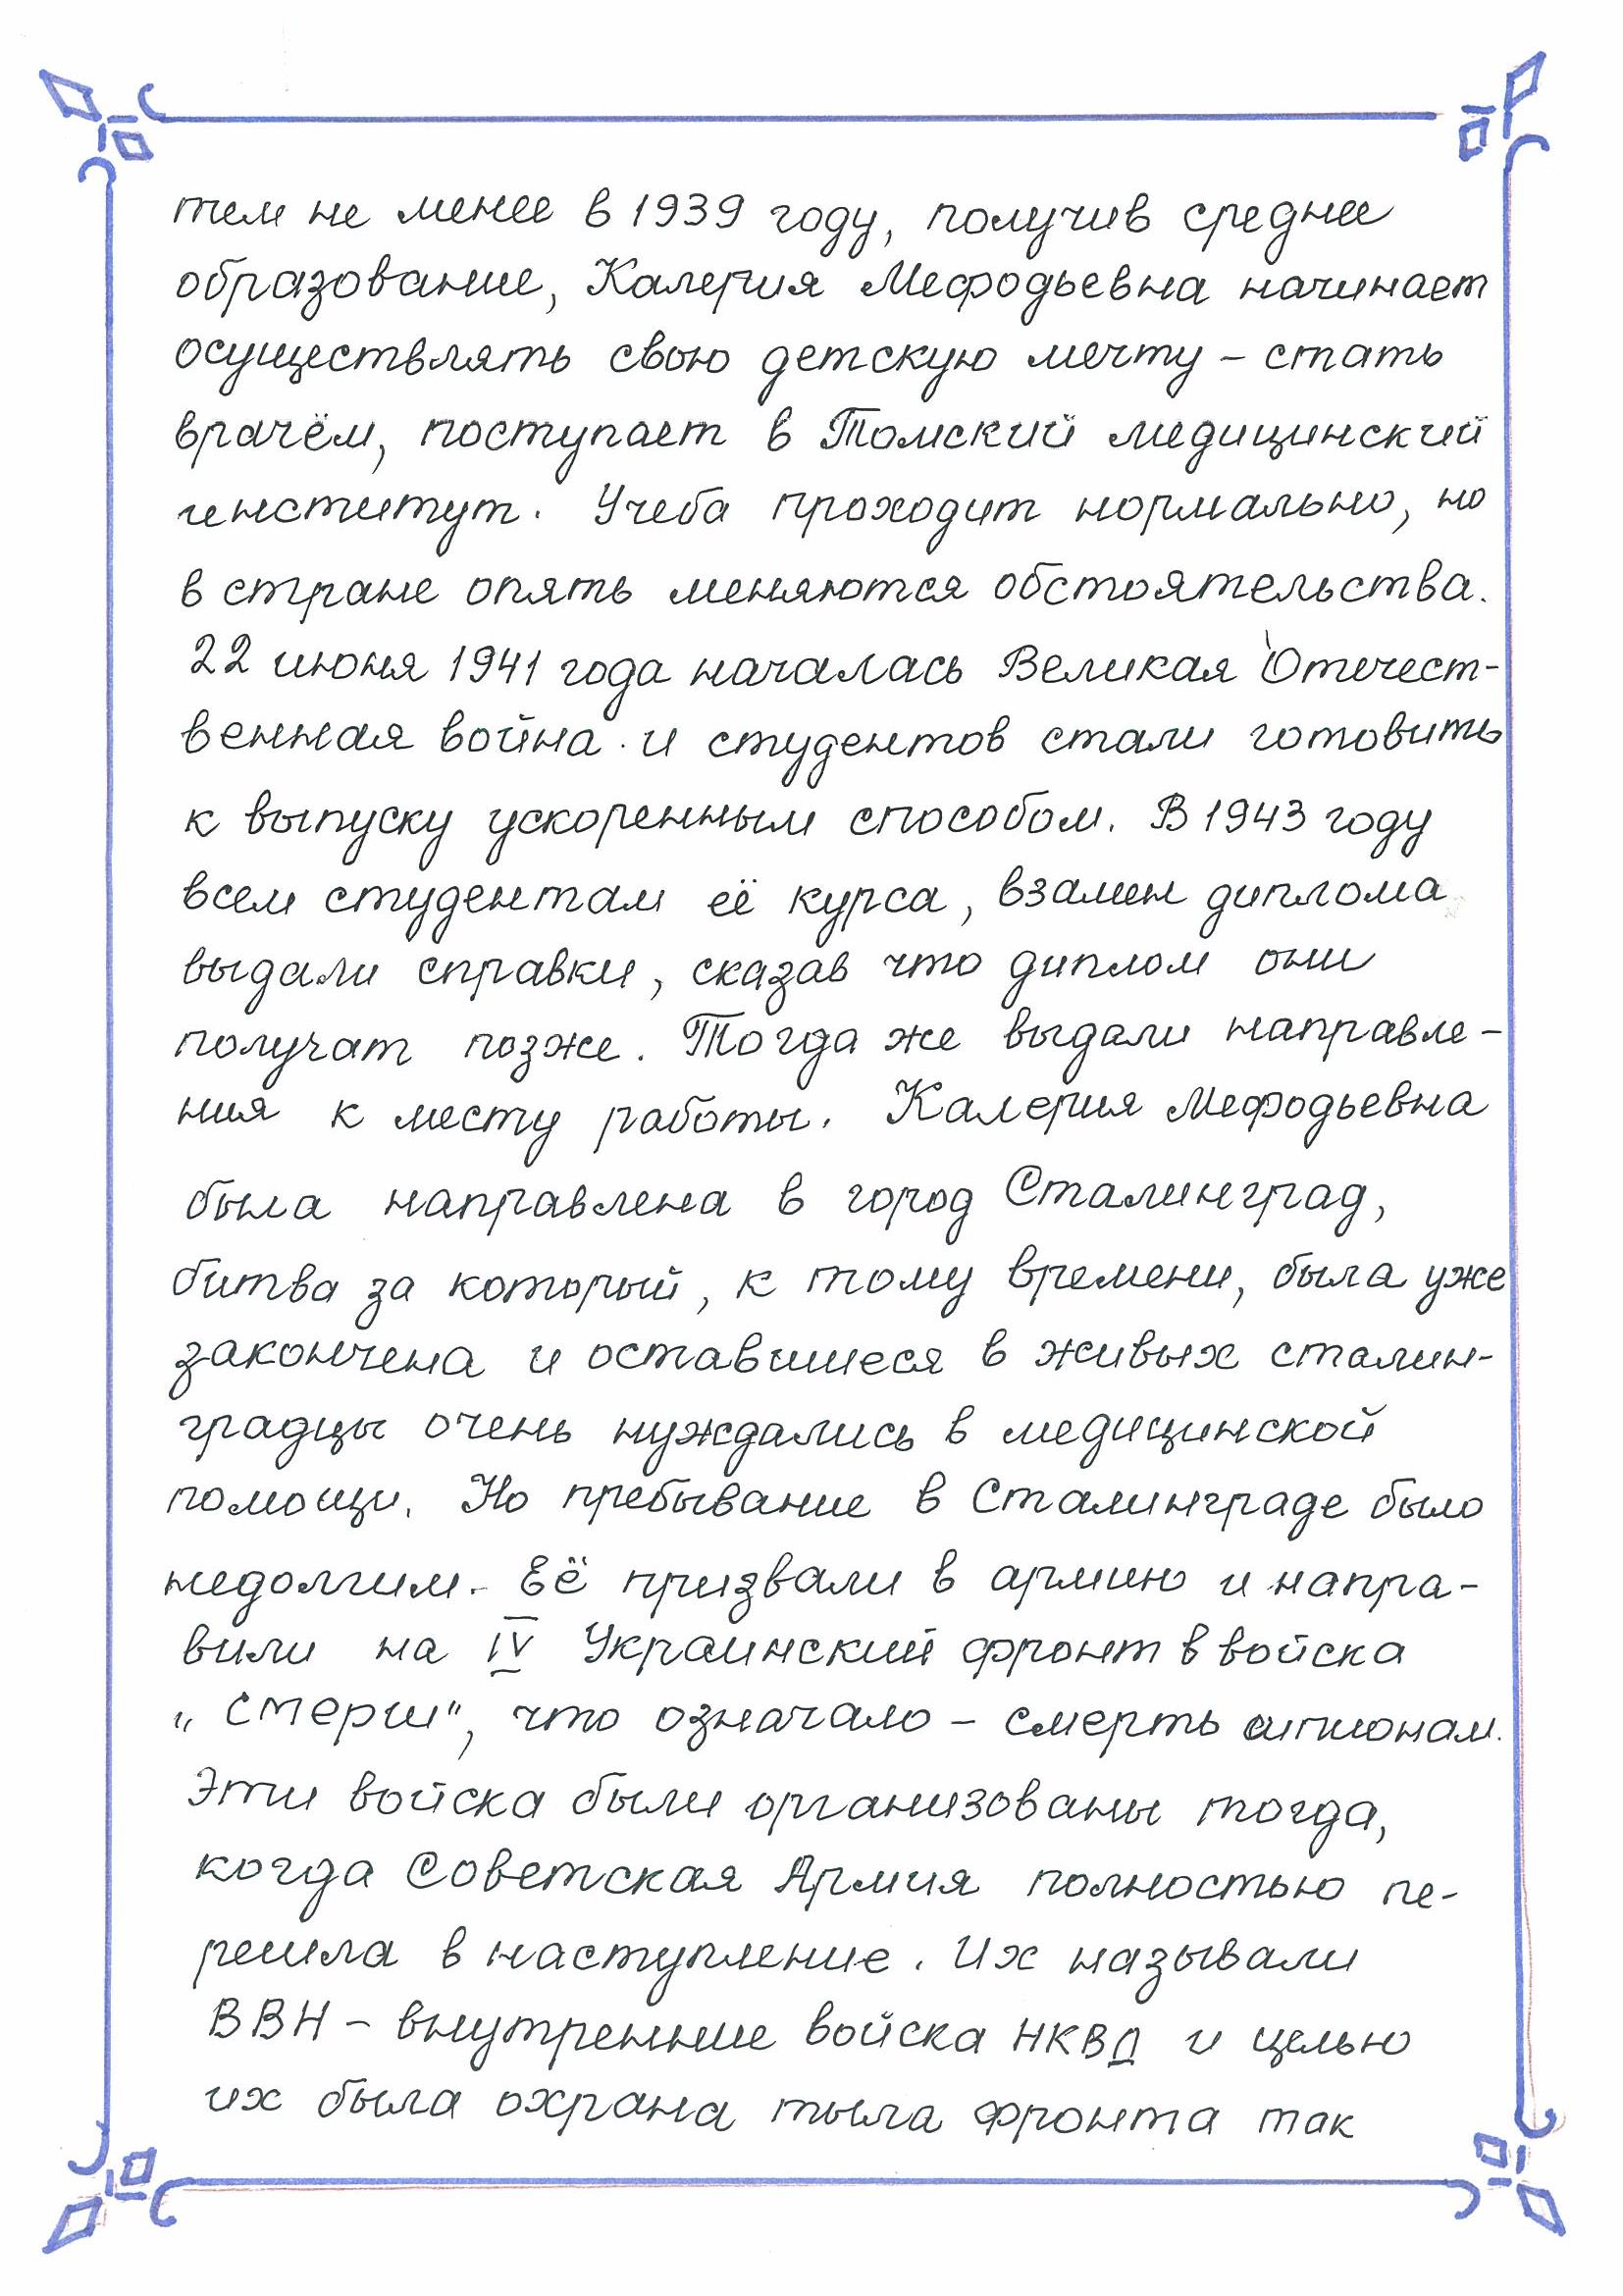 тем не менее в 1939 году, получив среднее
образование, Калерия Мефодьевна начинает
осуществлять свою детскую мечту – стать
врачём, поступает в Томский медицинский
институт. Учеба проходит нормально, но
в стране опять меняются обстоятельства.
22 июня 1941 года началась Великая Отечест-
венная война и студентов стали готовить
к выпуску ускоренным способом. В 1943 году
всем студентам её курса, взамен диплома
выдали справки, сказав что диплом они
получат позже. Тогда же выдали направле-
ния к месту работы. Калерия Мефодьевна
была направлена в город Сталинград,
битва за который, к тому времени, была уже
закончена и оставшиеся в живых сталин-
градцы очень нуждались в медицинской
помощи. Но пребывание в Сталинграде было
недолгим. Её призвали в армию и напра-
вили на IV Украинский фронт в войска
„Смерш", что означало – смерть шпионам.
Эти войска были организованы тогда,
когда Советская Армия полностью пе-
решла в наступление. Их называли
ВВН – внутренние войска НКВД и целью
их была охрана тыла фронта так